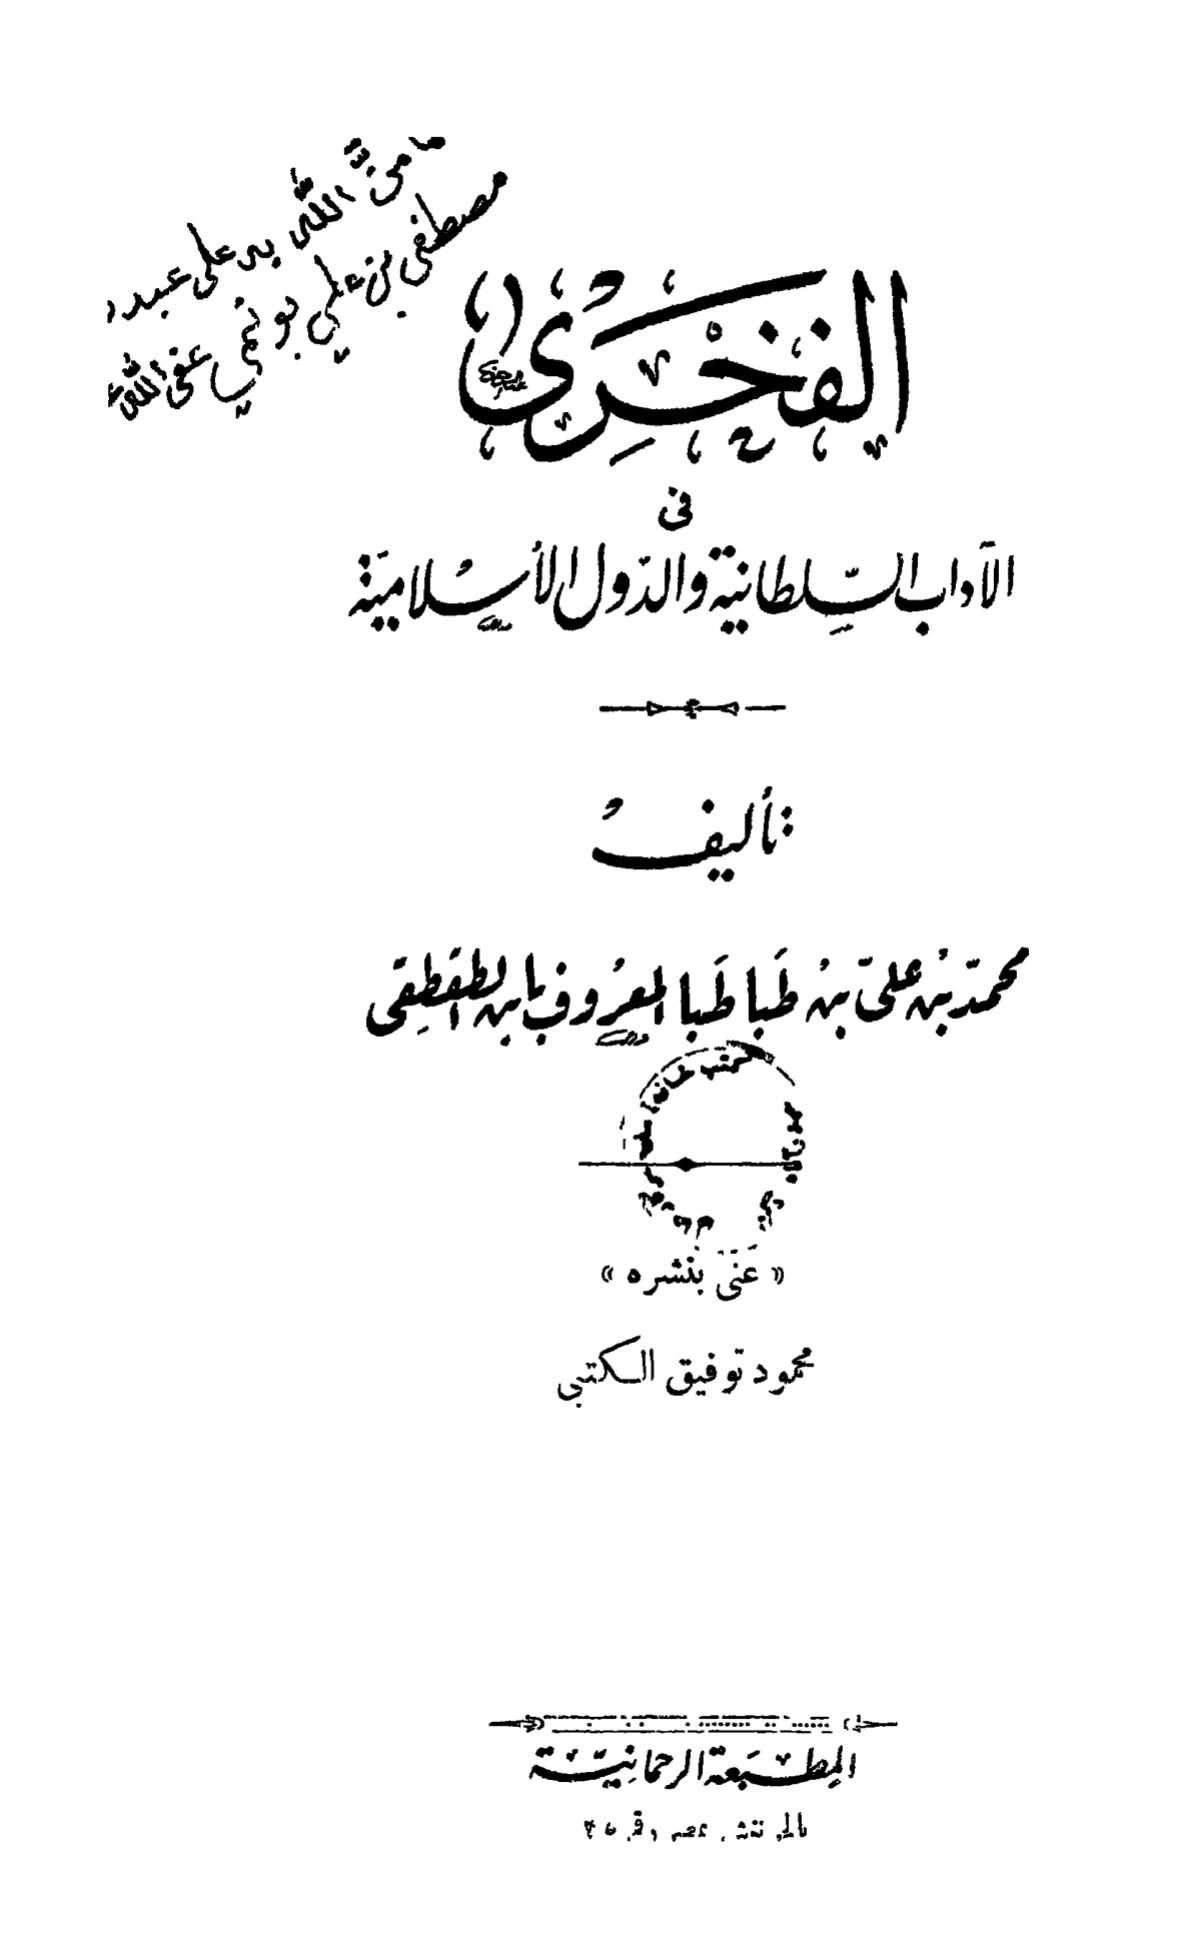 مما من الله به على عبده
مصطفى بن علي بو نمي عفى الله
الفَخْرِى
فى
الآداب السّلطانية والدّول الأسْلاميَّة
تأليفْ
محمّد بْن علىّ بنْ طَباطَبا المعرُوف بابن الطقطقى
« عُنىَ بنشره »
محمود توفيق الكتبى
المطْبَعة الرحمانِيَّة